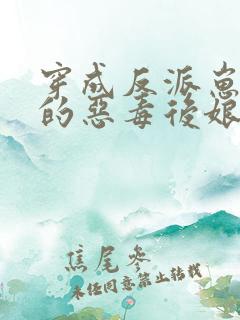 穿成反派崽
的惡毒後娘
焦尾參
未经同意禁止转载